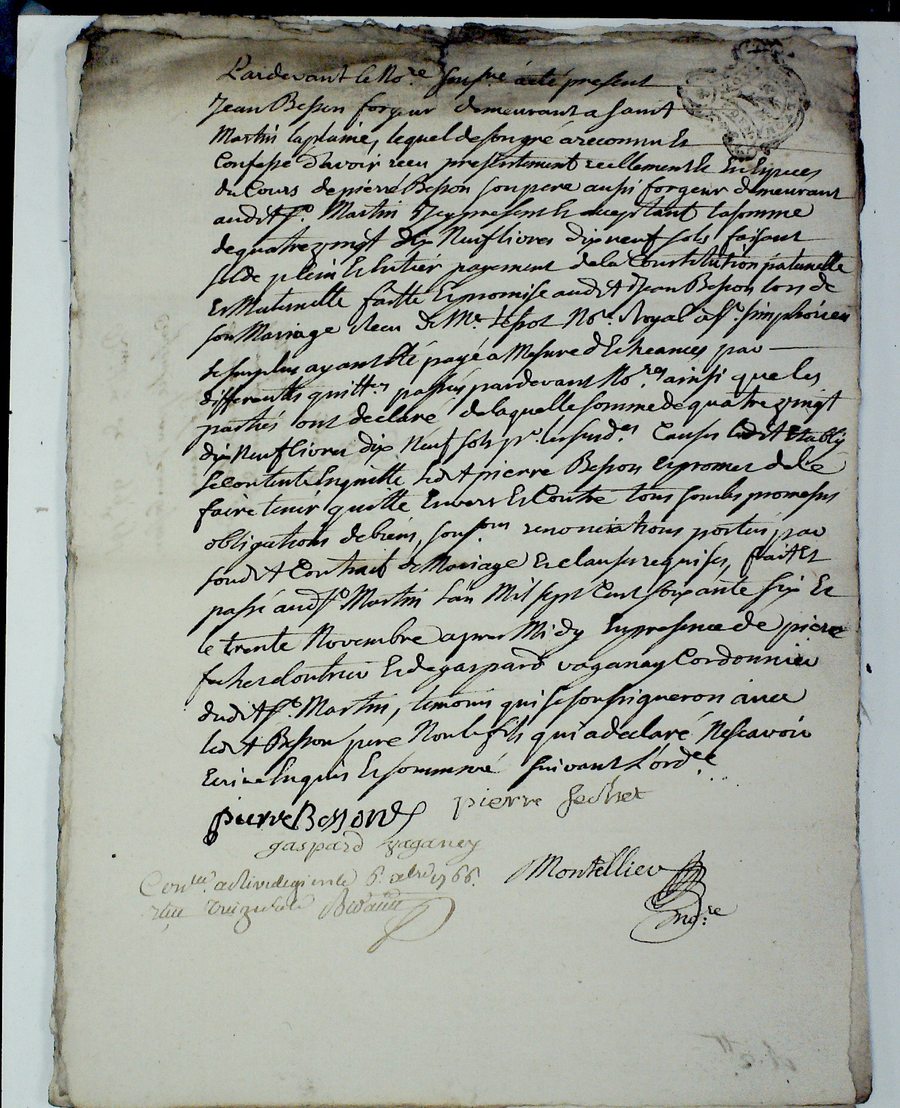 Pardevant le No.re sousné a eté present
Jean Besson forgeur demeurant a saint
Martin laplaine, lequel de son gré a reconnu et
Confessé d'avoir receu presentement reellement et en Especes
du Cours de pierre Besson son pere aussi forgeur demeurant
audit St. Martin Icy present et acceptant la somme
de quatre vingt dix Neuf livres dix neuf sols faisant
solde plein et Entier payement de la Constitution paternelle
Et Maternelle faitte Et promise audit Jean Besson lors de
son Mariage Receu Me No.re Royal a St. simphorien
le surplus ayant été payé a Mesure d'Echeances par
differentes quittces passées pardevant No.res ainsi que les
parties ont declaré de laquelle somme de quatre vingt
dix Neuf livres dix Neuf sols pr. les susdes Causes ledit Etably
se contente En quitte ledt pierre Besson Et promet de le
faire tenir quitte Envers Et Contre tous sous les promesses
obligations de biens, sousons renonciations portées par
sondit Contrait de Mariage Et clauses requises, fait Et
passé audt St. Martin L'an Mil sept Cent soixante six Et
le trente Novembre apres Midy En presence de pierre
Et de gaspard vaganay Cordonnier
dudit St. Martin, temoins qui se soussigneron avec
ledt Besson pere Non le fils qui a declaré Ne scavoir
Ecrire Enquis Et sommmé suivant L'ordce
pierre Besson
pierre
gaspard vaganey
Conlle a St 6. xbre 1766.
Reçu treize sols
Montellier
No.re